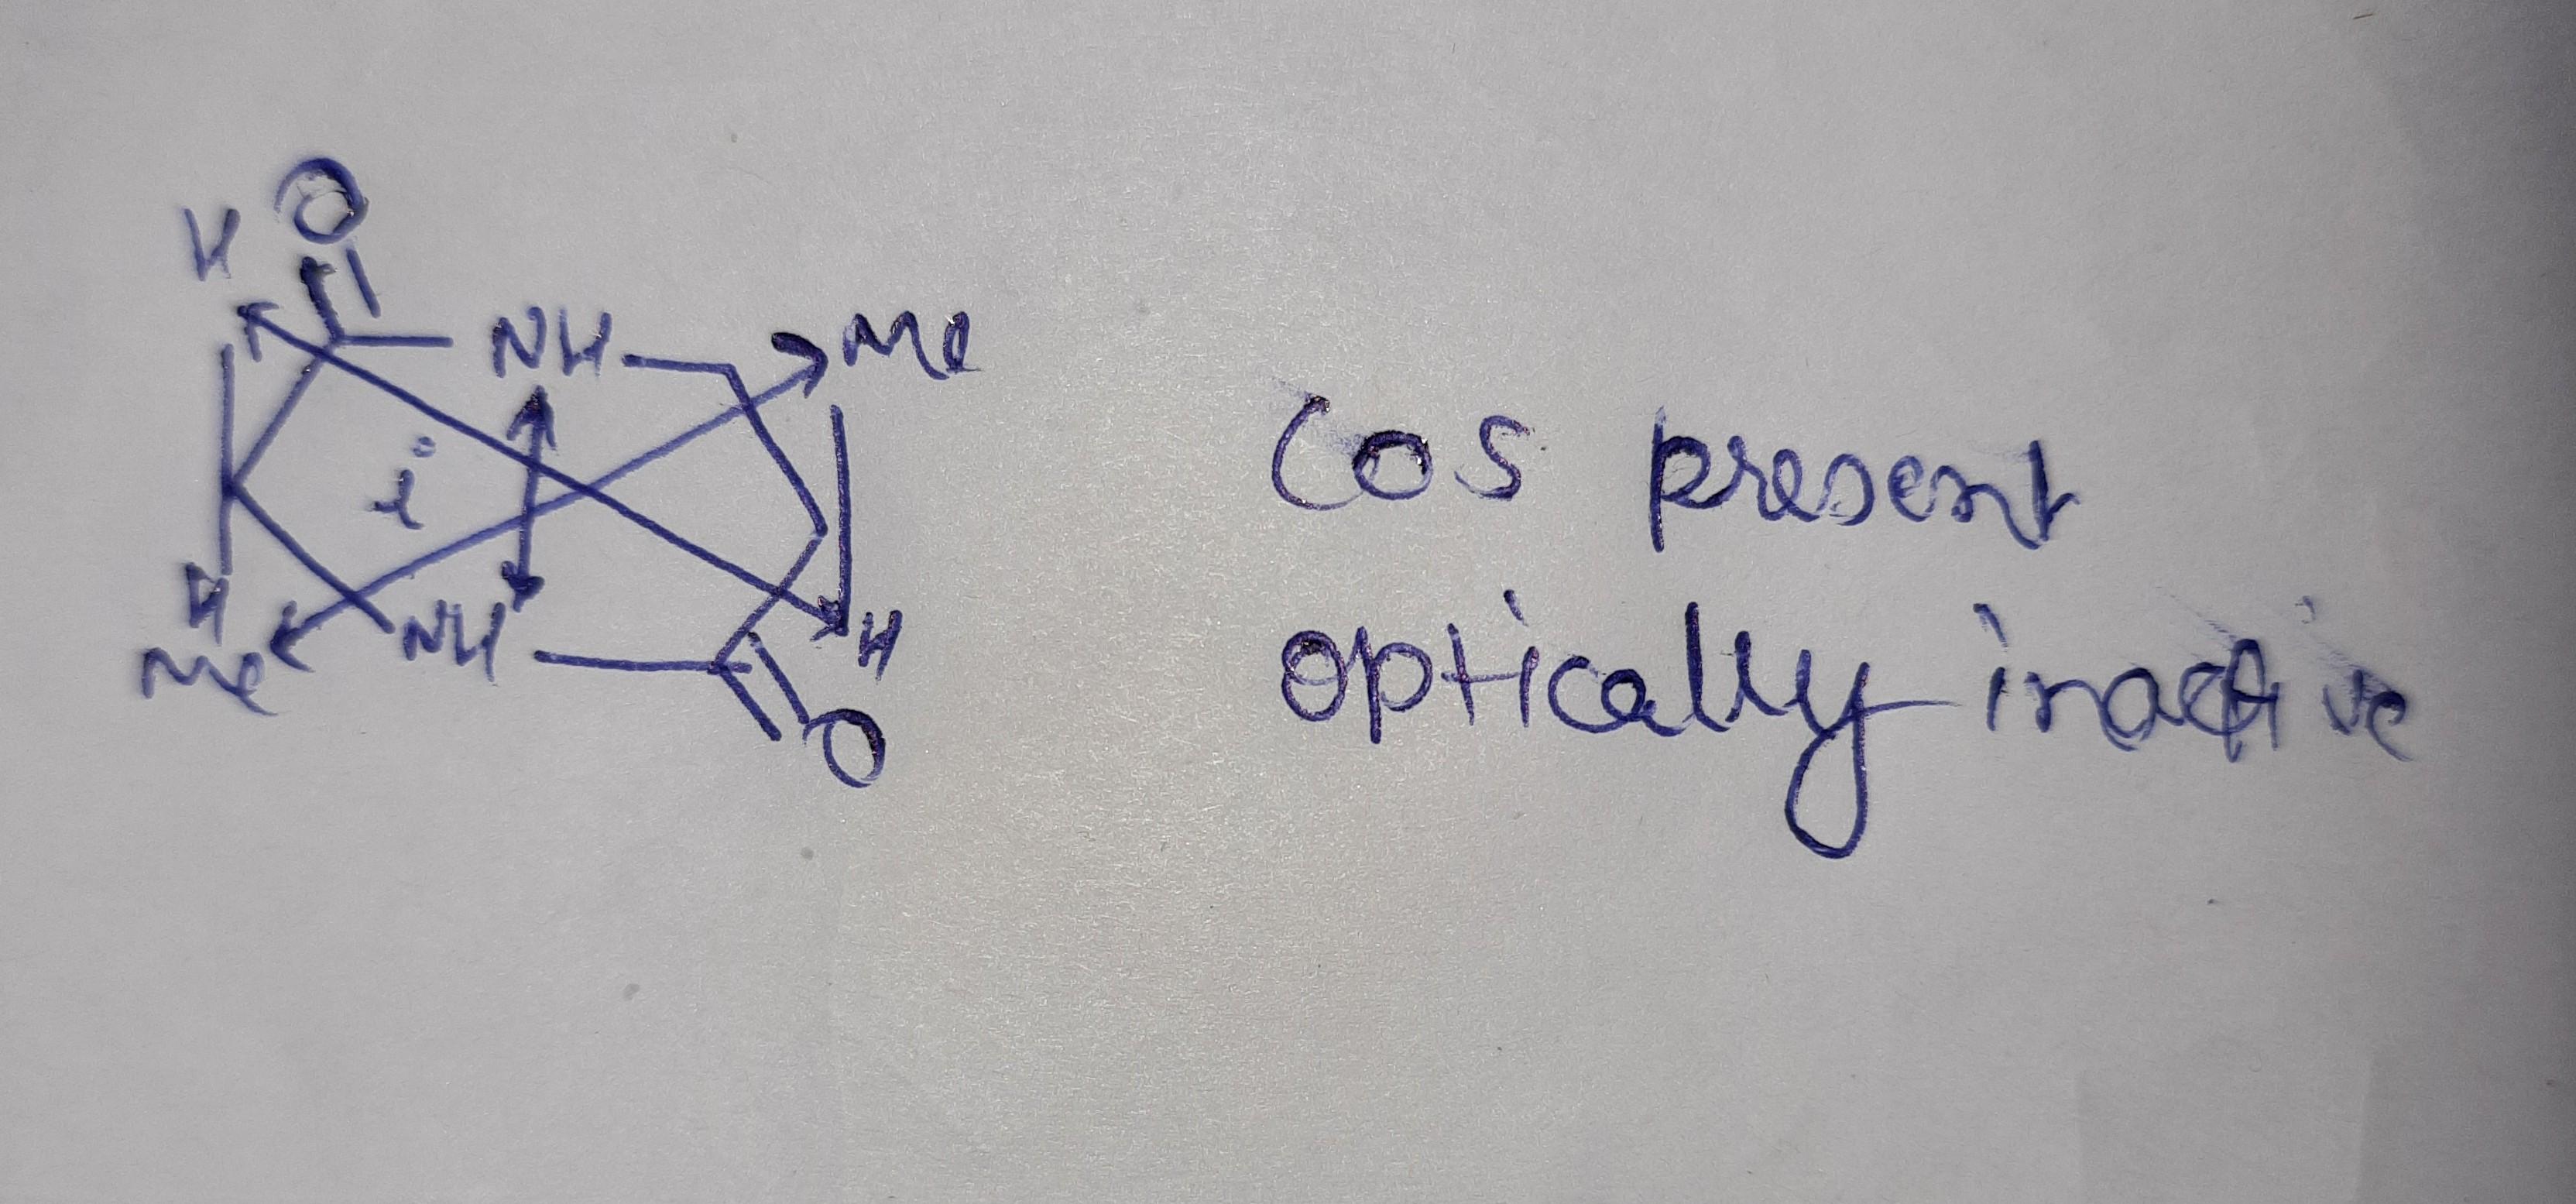 O
H
NH
Me
i
COS present
H
Me
NH
H
O
optically inactive